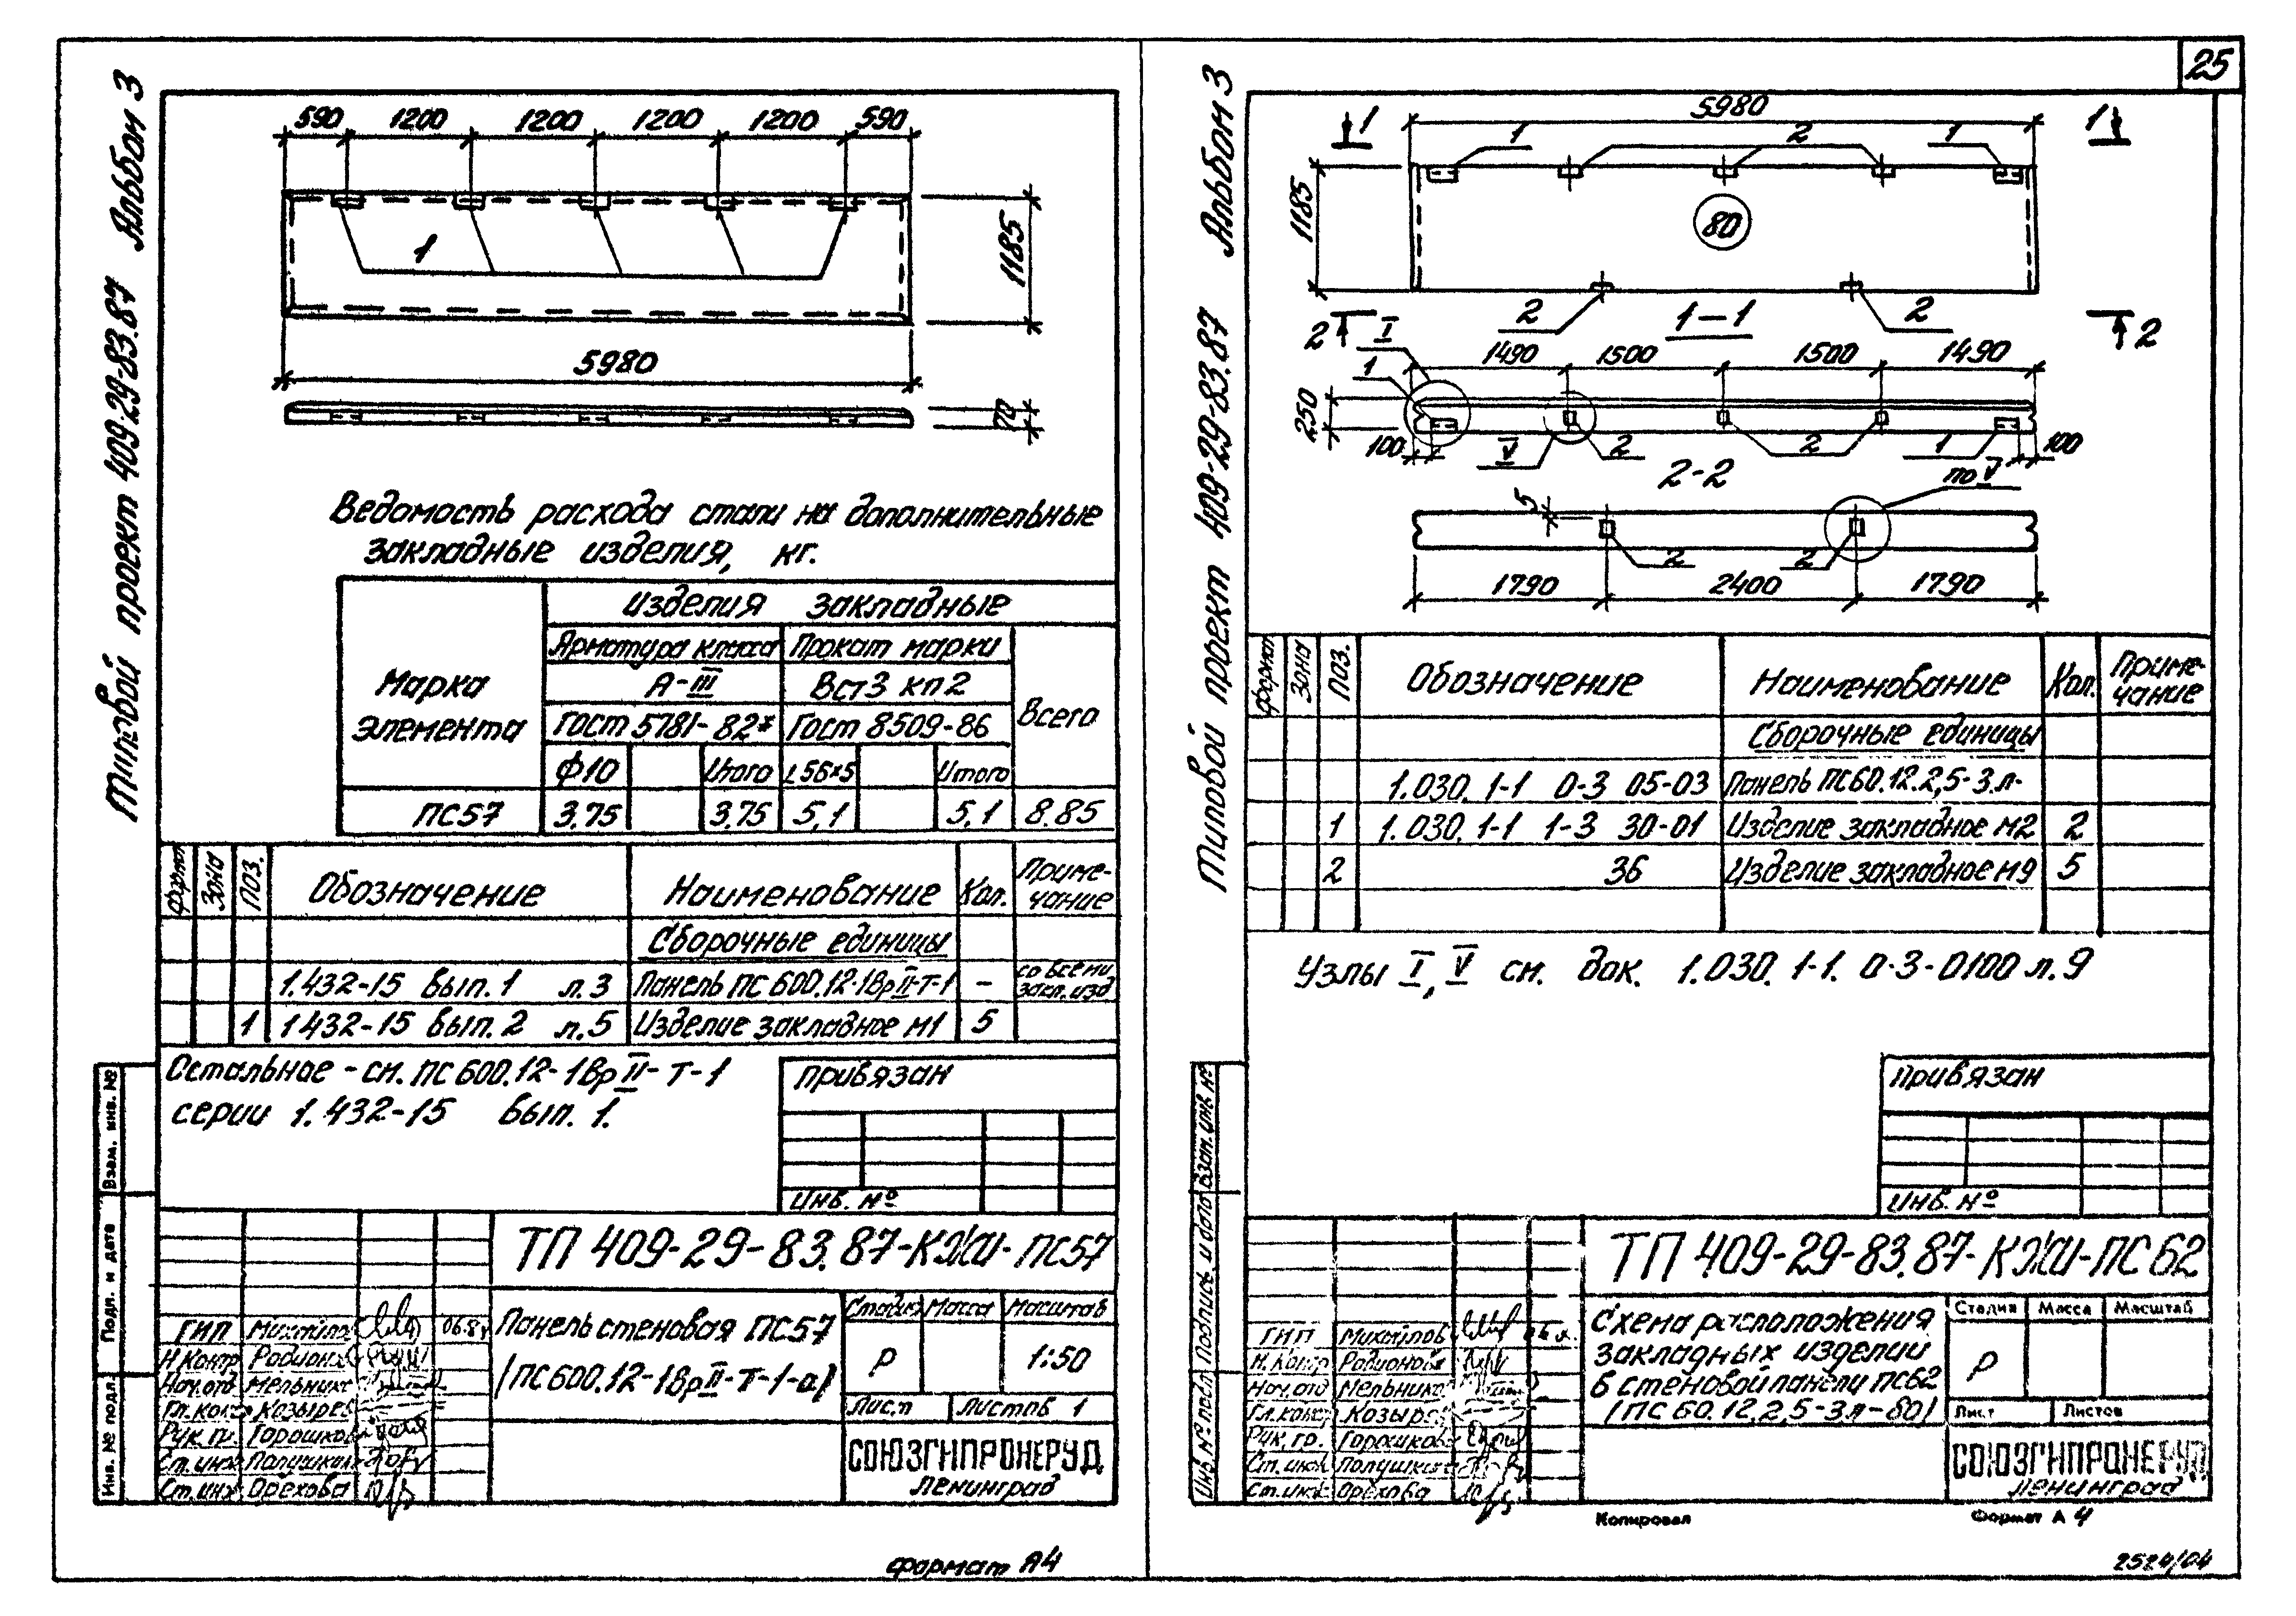 25
Типовой проект 409-29-83.87 Альбом 3
590 1200 1200 1200 1200 590
1
1185
5980
70
Ведомость расхода стали на дополнительные
закладные изделия, кг.
Марка элемента
Изделия закладные
Арматура класса Прокат марки
А-III Вст3 кп2
Всего
Гост 5781-82* Гост 8509-86
Ф10 Итого L56×5 Итого
ПС57 3.75 3.75 5,1 5,1 8.85
Формат Зона Поз. Обозначение Наименование Кол. Приме-чание
Сборочные единицы
1.432-15 вып. 1 л.3 Панель ПС 600.12-1ВрII-Т-1 – со всеми закл. изд
1 1 432-15 вып. 2 л.5 Изделие закладное М1 5
Остальное - см. ПС 600.12-1ВрII-Т-1
серии 1.432-15 Вып. 1.
Привязан
Инв. №
Взам. инв. №
Подп. и дата
Инв. № подл.
ТП 409-29-83.87-КЖИ-ПС57
Панель стеновая ПС57
(ПС600.12-1ВрII-Т-1-а)
Стадия Масса Масштаб
Р 1:50
Лист Листов 1
СОЮЗГИПРОНЕРУД
Ленинград
ГИП Михайлов 06.87
Н.Контр Родионов
Нач.отд Мельник
Гл.конс Козырев
Рук.гр. Горошков
Ст.инж Полушкин
Ст.инж Орехова
Формат А4
Типовой проект 409-29-83.87 Альбом 3
1 5980 1
1 2 1
1185
80
2 2
2 1-1 2
I 1490 1500 1500 1490
1
250
100 V 2 2 1 100
2-2 по V
5
2 2
1790 2400 1790
Формат Зона Поз. Обозначение Наименование Кол. Приме-чание
Сборочные единицы
1.030. 1-1 0-3 05-03 Панель ПС60.12.2,5-3.л-
1 1.030. 1-1 1-3 30-01 Изделие закладное М2 2
2 36 Изделие закладное М9 5
Узлы I, V см. док. 1.030. 1-1. 0-3-0100 л. 9
Привязан
Инв. №
Взам. инв №
Подпись и дата
Инв. № подл
ТП 409-29-83.87-КЖИ-ПС62
Схема расположения
закладных изделий
в стеновой панели ПС62
(ПС 60.12.2,5-3л-80)
Стадия Масса Масштаб
Р
Лист Листов
СОЮЗГИПРОНЕРУД
Ленинград
ГИП Михайлов
Н.контр Родионов
Нач.отд Мельник
Гл.конс Козырев
Рук.гр. Горошков
Ст.инж Полушкин
Ст.инж Орехова
Копировал Формат А 4
2524/04